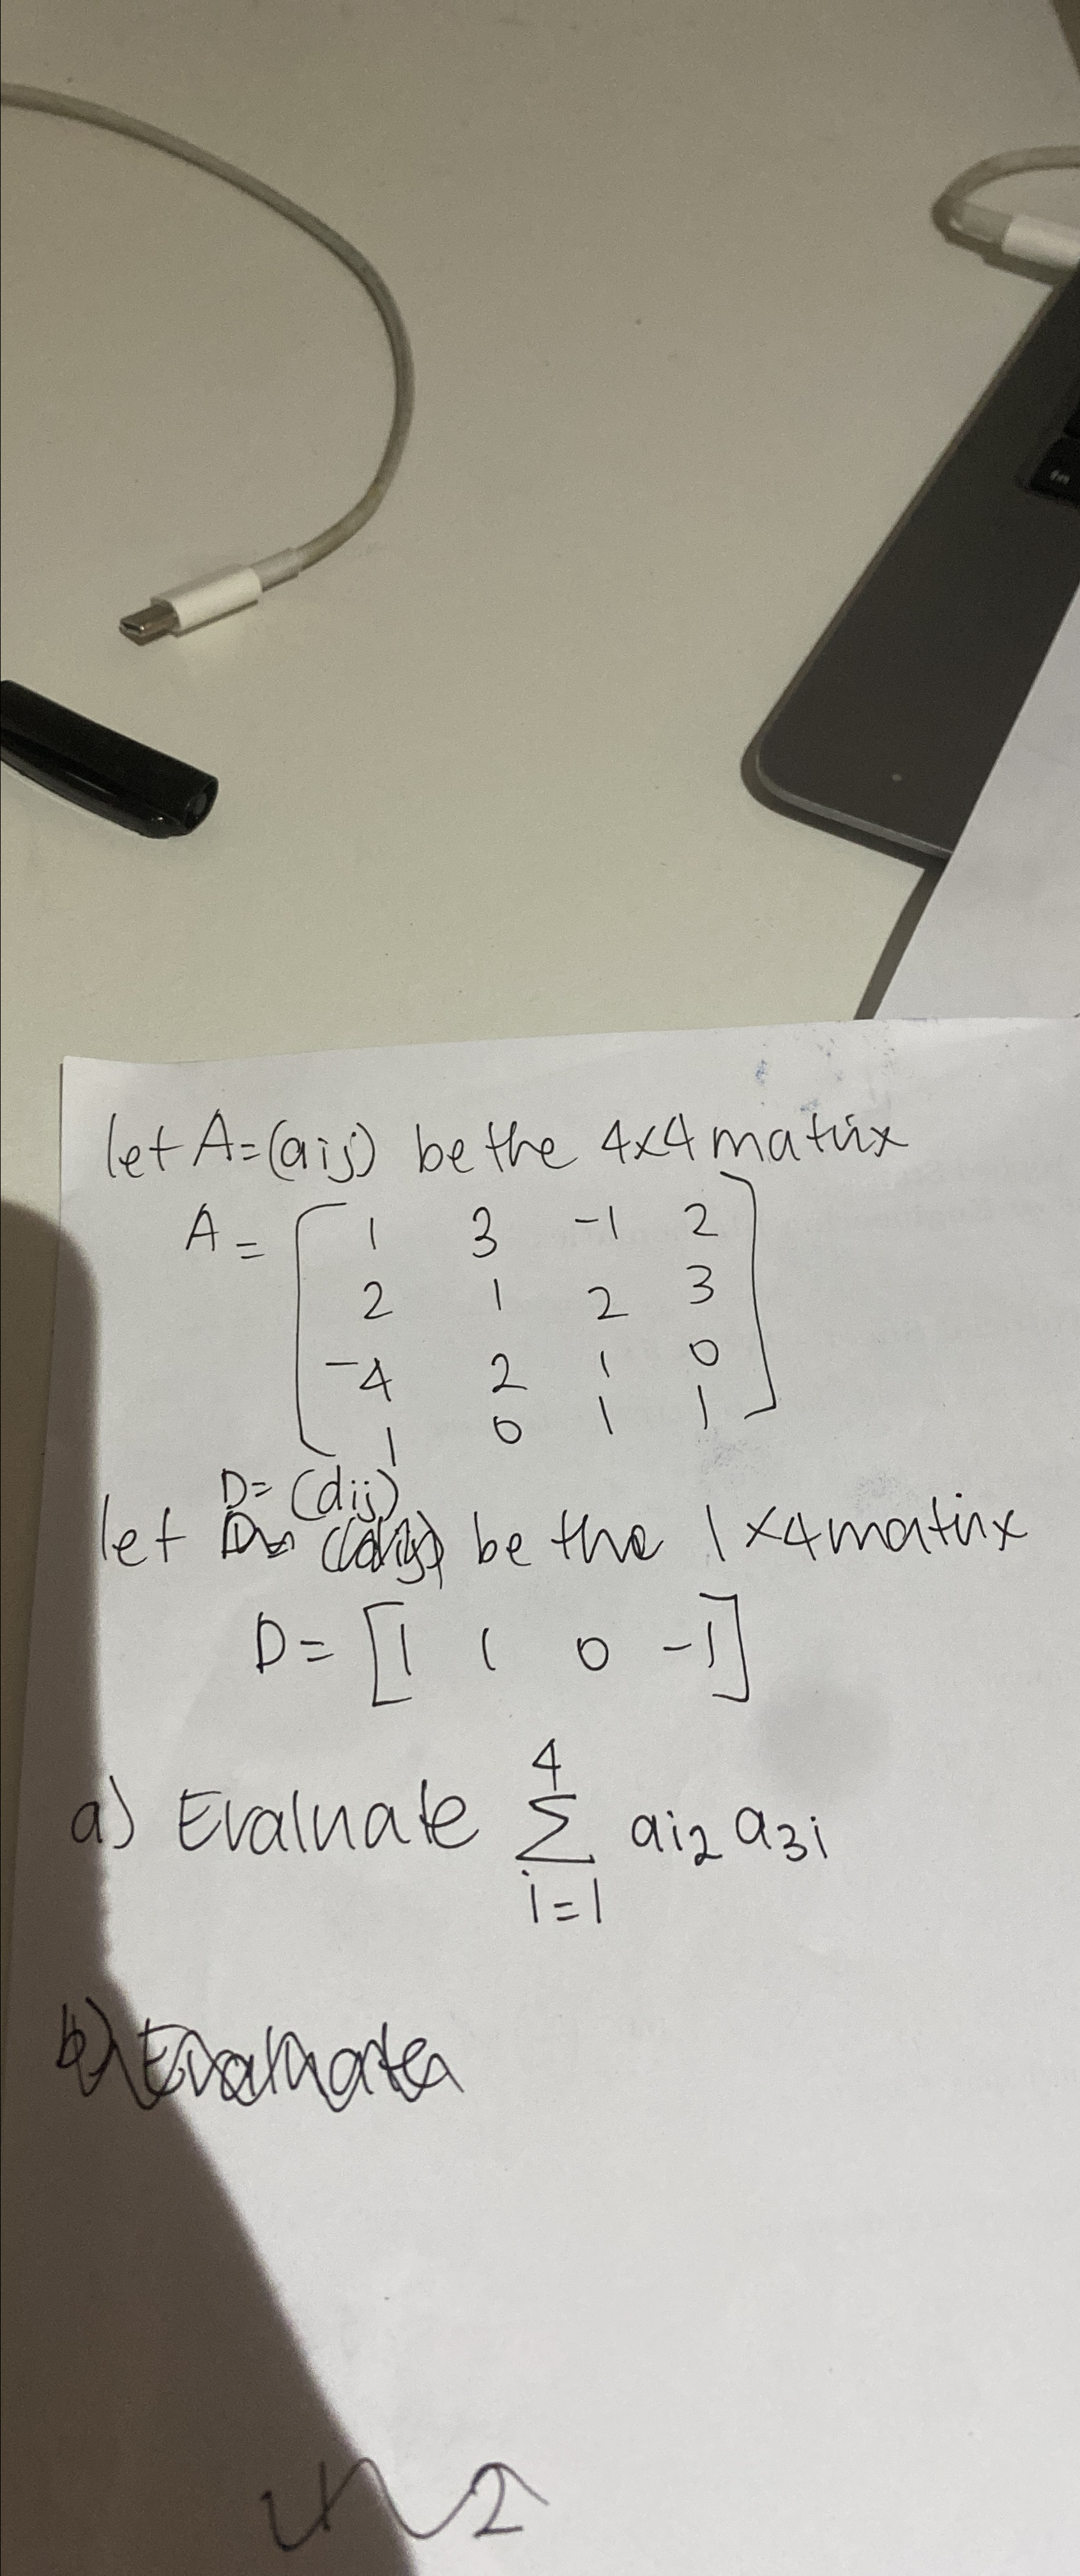 let A=(aij) be the 4x4 matrix
A = [ 1 3 -1 2
2 1 2 3
-4 2 1 0
1 0 1 1 ]
D= (dij)
let be the 1x4 matrix
D = [1 1 0 -1]
a) Evaluate 4 Σ i=1 ai2 a3i
b) Evaluate